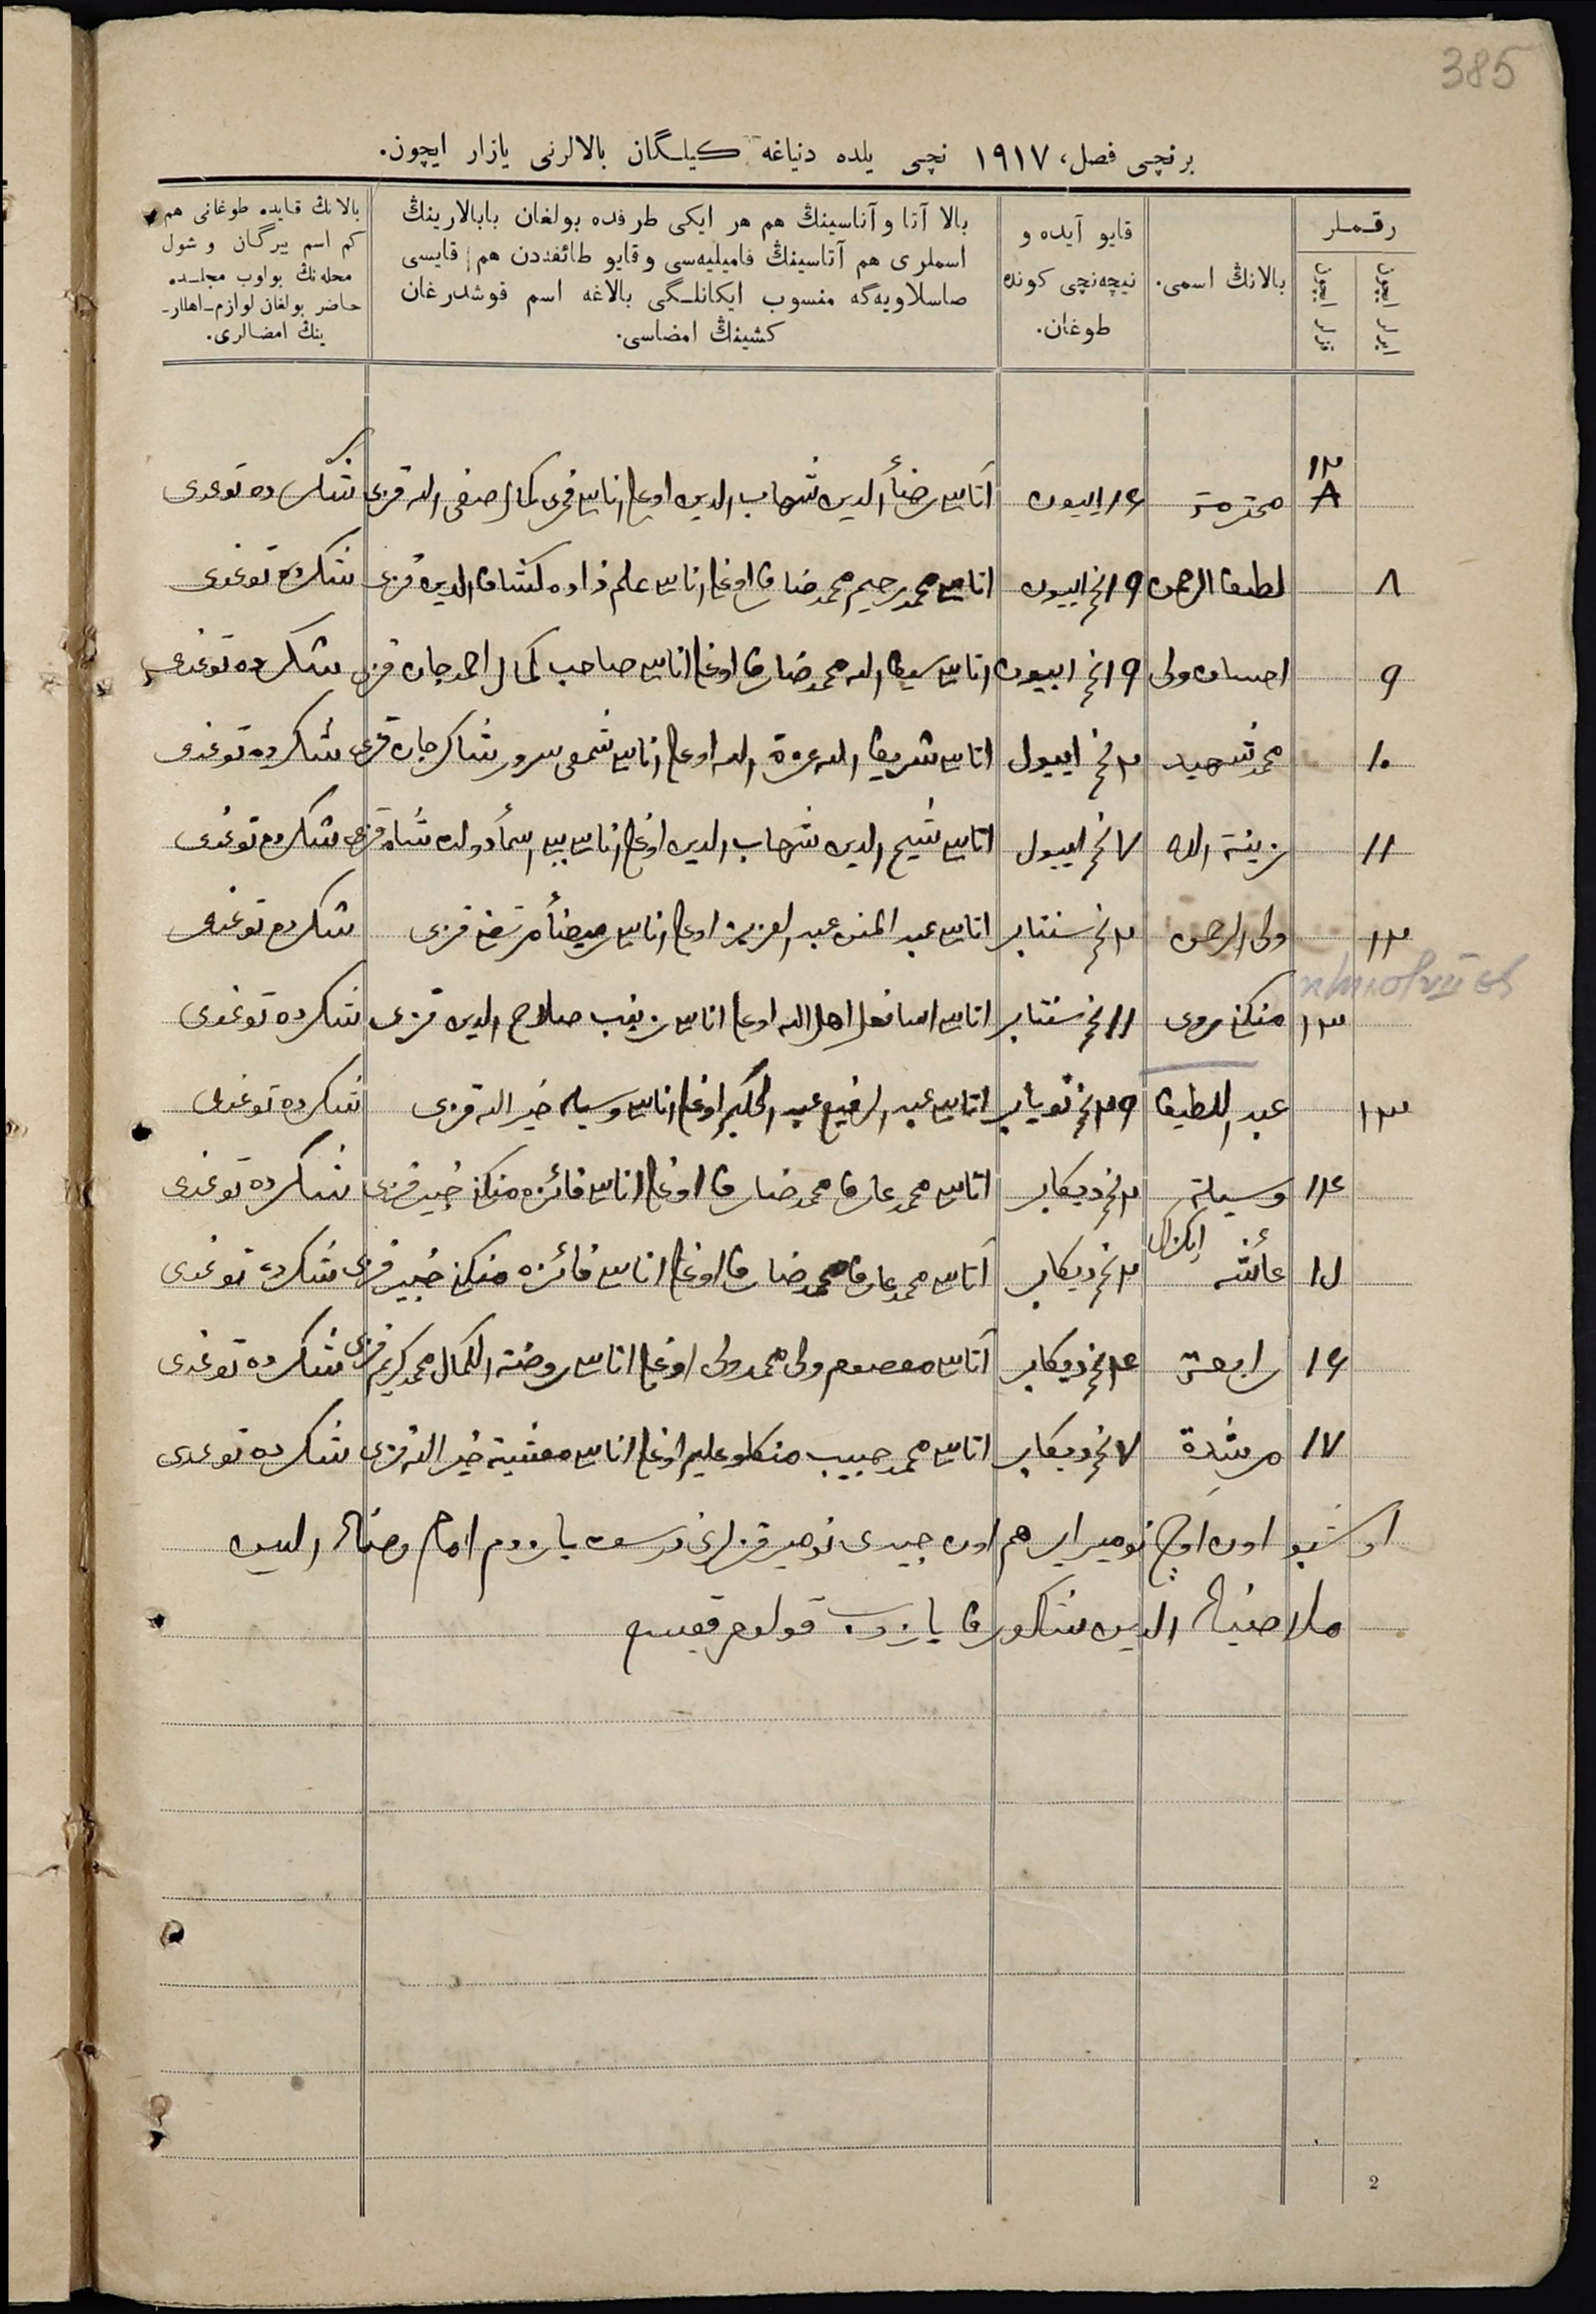 385
برنچی فصل، ۱۹۱۷ نچی یلده دنیاغه کیلـگان بالالرنی یازار ایچون.
رقـملر
ایرلر ایچون
قزلر ایچون
بالانڭ اسمی.
قایو آیده و
نیچه‌نچی کونده
طوغان.
بالا آتا و آناسینڭ هم هر ایکی طرفده بولغان بابالارینڭ
اسملری هم آتاسینڭ فامیلیه‌سی و قایو طائفه‌دن هم قایسی
صاسلاویه‌گه منسوب ایکانلـگی بالاغه اسم قوشدرغان
کشینڭ امضاسی.
بالانڭ قایده طوغانی هم
کم اسم بیرگان و شول
محله‌نڭ بولوب مجلسده
حاضر بولغان لوازم اهللر-
ینڭ امضالری.
۱۲
۸ محترمة ۱۶ اییون آتاسی رضأ الدین شهاب الدین اوغلی اناسی فخری کمال صفی الله قزی شکرده توغدی
۸ لطیف الرحمن ۱۹ نچی اییون اتاسی محمد رحیم محمد ضارف اوغلی اناسی علم زاده کشاف الدین قزی شکرده توغدی
۹ احسان ولی ۱۹ نچی اییون اتاسی سیف الله محمد ضارف اوغلی اناسی صاحب کمال احمد جان قزی شکرده توغدی
۱۰ محمد شهید ۲ نچی اییول اتاسی شریف الله عزة الله اوغلی اناسی شمعی سرور شاکر جان قزی شکرده توغدی
۱۱ زینة الله ۷ نچی اییول اتاسی شیخ الدین شهاب الدین اوغلی اناسی بی بی اسمأ دولة شاه قزی شکرده توغدی
۱۲ ولی الرحمن ۲ نچی سنتابر اتاسی عبد المنن عبد العزیز اوغلی اناسی بیضأ مرتضی قزی شکرده توغدی
۱۳ منکزروی ۱۱ نچی سنتابر اتاسی اهل الله اوغلی اناسی زینب صلاح الدین قزی شکرده توغدی
۱۳ عبد اللطیف ۲۹ نچی نویابر اتاسی عبد الرفیع عبد الحکیم اوغلی اناسی وسیله خیر الله قزی شکرده توغدی
۱۴ وسیلة ۲ نچی دیکابر اتاسی محمد عارف محمد ضارف اوغلی اناسی فائزه منکز خبیر قزی شکرده توغدی
ایکزال
۱۵ عائشه ۲ نچی دیکابر آتاسی محمد عارف محمد ضارف اوغلی اناسی فائزه منکز خبیر قزی شکرده توغدی
۱۶ رابعة ۲۴ نچی دیکابر آتاسی معصوم ولی محمد ولی اوغلی اناسی روضة الکمال محمد کریم قزی شکرده توغدی
۱۷ مرشدة ۷ نچی دیکابر اتاسی محمد حبیب منکلو علیم اوغلی اناسی معشیة خیر الله قزی شکرده توغدی
اوشبو اون اوچ نومیر ایر هم اون جیدی نومیر قزلرنی درست یازدم امام رضاء الدین
ملا ضیاء الدین شکورف یازوب قولوم قویدم
2